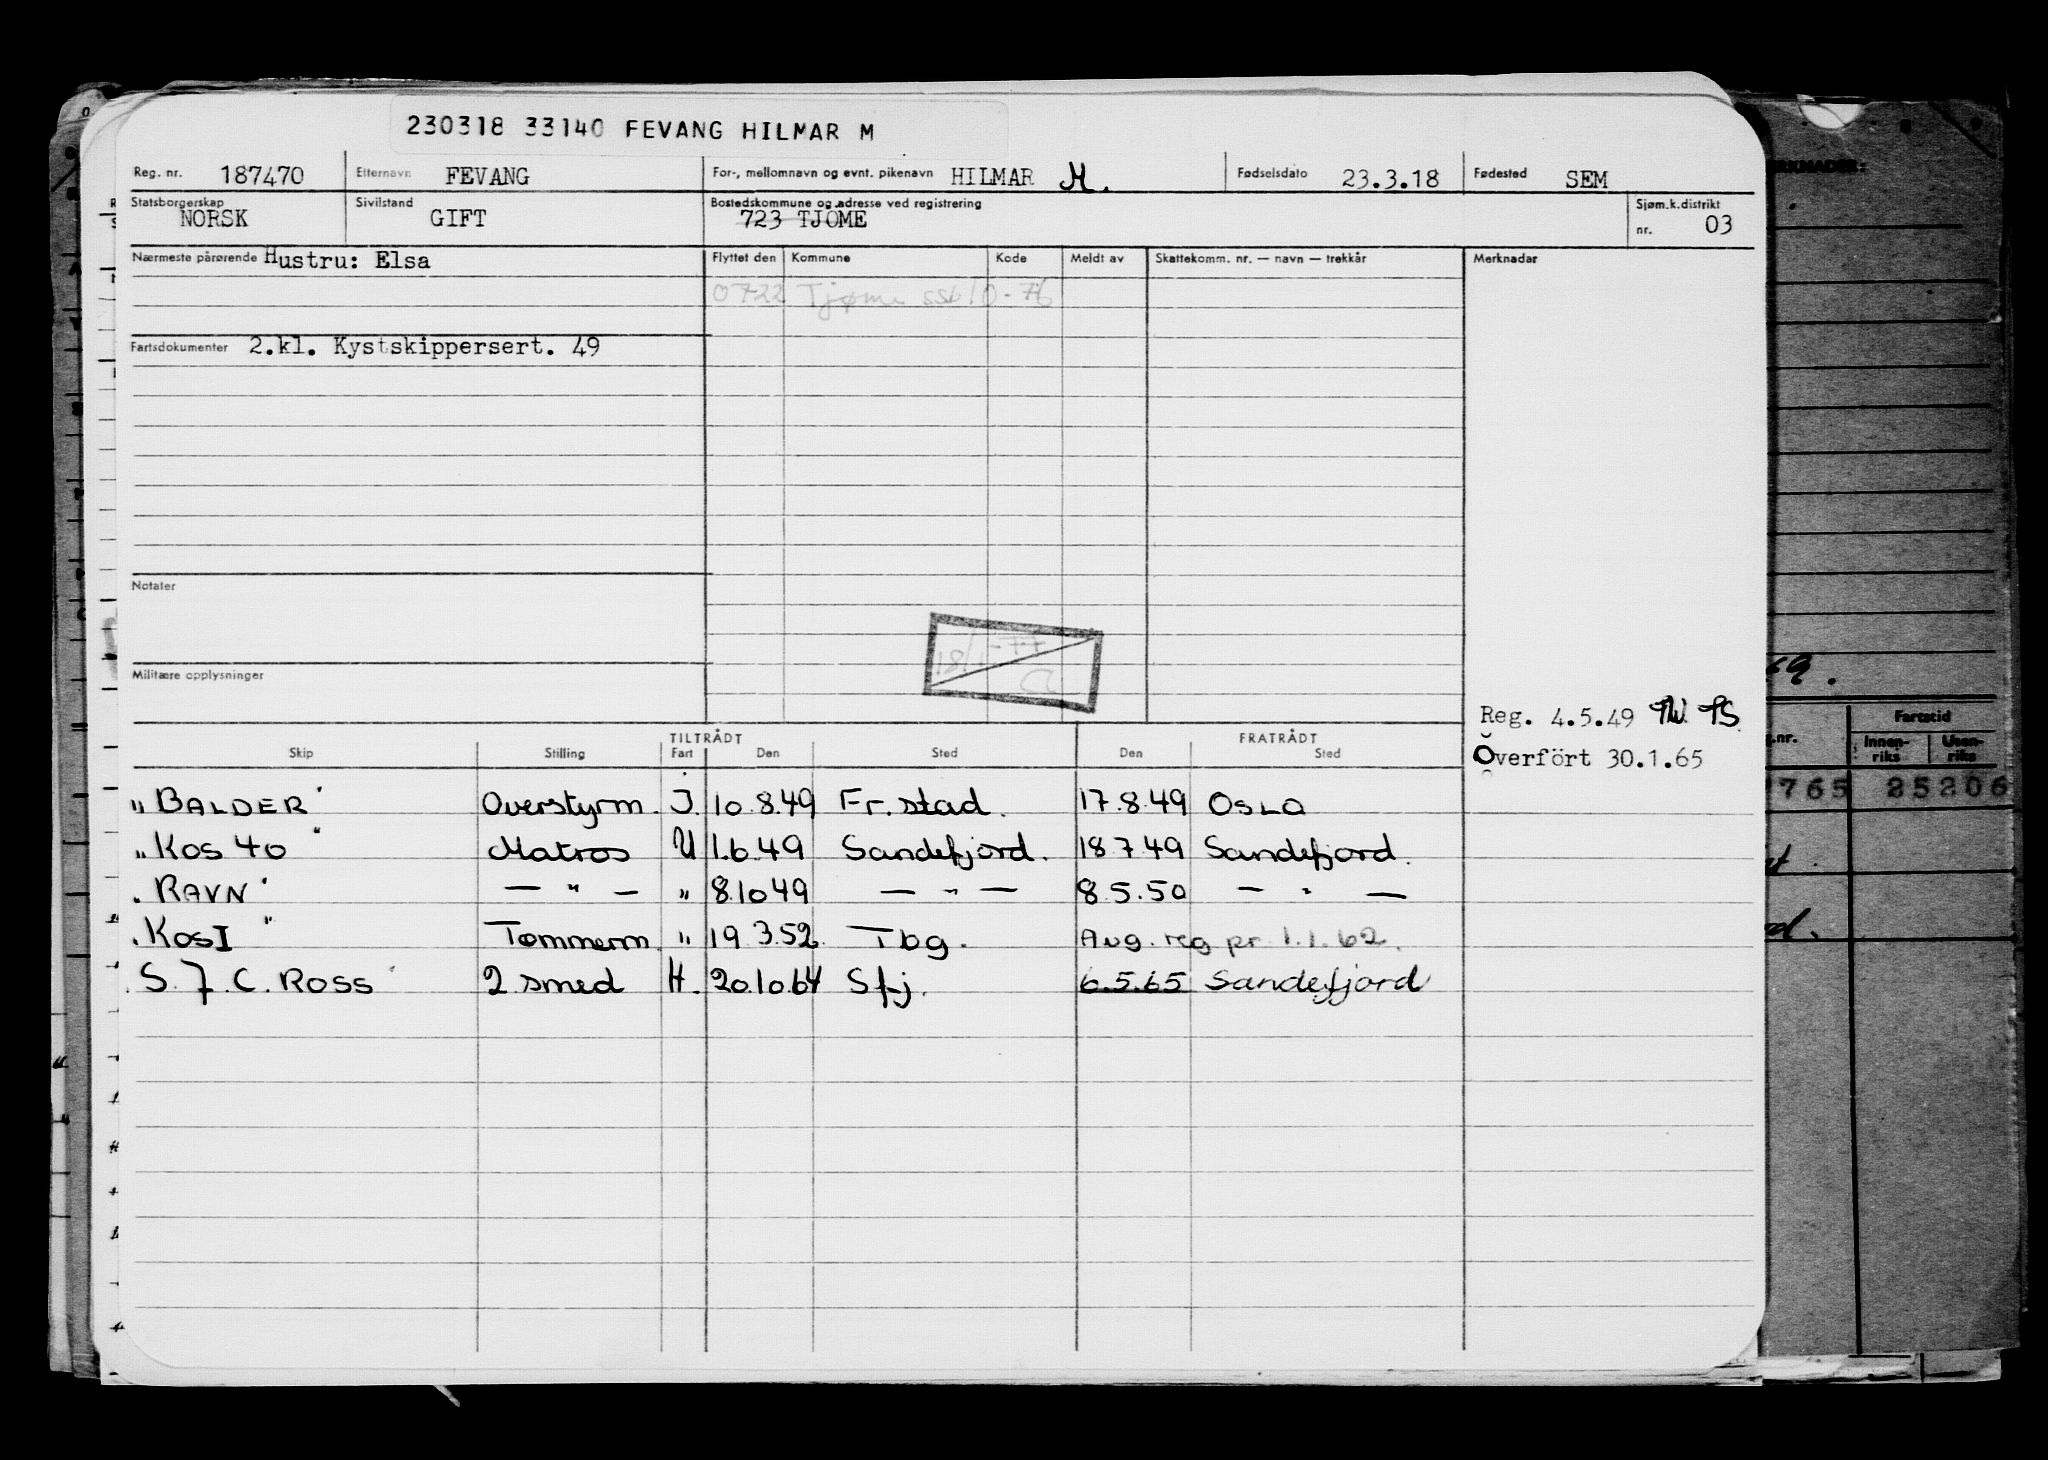 230318 33140 FEVANG HILMAR M
Reg. nr. 187470 Etternavn FEVANG For-, mellomnavn og evnt. pikenavn HILMAR M. Fødselsdato 23.3.18 Fødested SEM
Statsborgerskap NORSK Sivilstand GIFT Bostedskommune og adresse ved registrering 723 TJÖME Sjøm.k.distrikt nr. 03
Nærmeste pårørende Hustru: Elsa Flyttet den Kommune Kode Meldt av Skattekomm. nr. — navn — trekkår Merknader
0722 Tjøme ssb 10-76
Fartsdokumenter 2.kl. Kystskippersert. 49
Notater
18/1-77
Militære opplysninger
Reg. 4.5.49
Överfört 30.1.65
TILTRÅDT FRATRÅDT
Skip Stilling Fart Den Sted Den Sted
"BALDER" Overstyrm. I. 10.8.49 Fr.stad. 17.8.49 OSLO
"KOS 40" Matros U 1.6.49 Sandefjord. 18.7.49 Sandefjord.
"RAVN" — " — " 8.10.49 — " — 8.5.50 — " —
"KOS I" Tømmerm. " 19.3.52. Tbg. Avg. reg pr. 1.1.62.
S. J. C. ROSS 2 smed H. 20.10.64 Sfj. 6.5.65 Sandefjord
RKNADER:
69.
Fartstid
nr. Innen-riks Uten-riks
765 25206